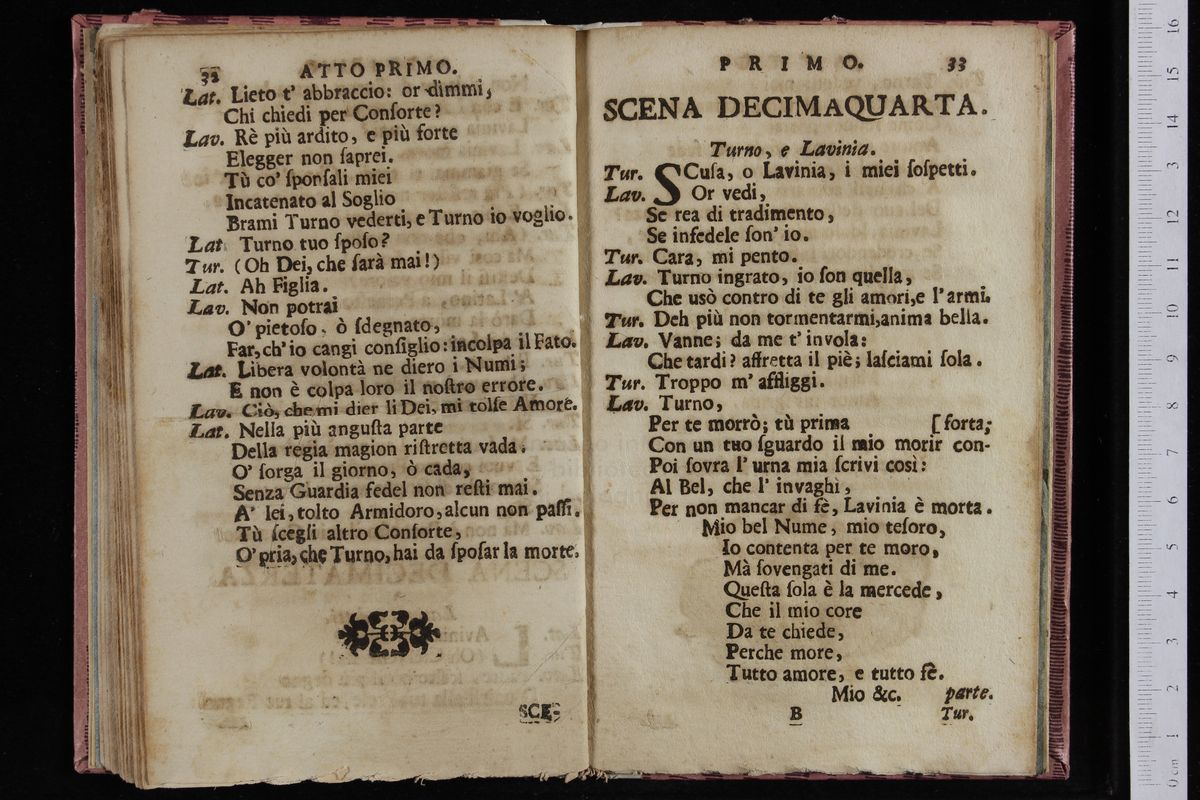 32 ATTO PRIMO.
Lat. Lieto t' abbraccio: or dimmi,
Chi chiedi per Conſorte?
Lav. Rè più ardito, e più forte
Elegger non ſaprei.
Tù co' ſponſali miei
Incatenato al Soglio
Brami Turno vederti, e Turno io voglio.
Lat. Turno tuo ſpoſo?
Tur. (Oh Dei, che ſarà mai!)
Lat. Ah Figlia.
Lav. Non potrai
O' pietoſo, ò ſdegnato,
Far, ch' io cangi conſiglio: incolpa il Fato.
Lat. Libera volontà ne diero i Numi;
E non è colpa loro il noſtro errore.
Lav. Ciò, che mi dier li Dei, mi tolſe Amore.
Lat. Nella più anguſta parte
Della regia magion riſtretta vada.
O' ſorga il giorno, ò cada,
Senza Guardia fedel non reſti mai.
A' lei, tolto Armidoro, alcun non paſſi.
Tù ſcegli altro Conſorte,
O' pria, che Turno, hai da ſpoſar la morte.
SCE-
PRIMO. 33
SCENA DECIMAQUARTA.
Turno, e Lavinia.
Tur. SCuſa, o Lavinia, i miei ſoſpetti.
Lav. Or vedi,
Se rea di tradimento,
Se infedele ſon' io.
Tur. Cara, mi pento.
Lav. Turno ingrato, io ſon quella,
Che usò contro di te gli amori,e l'armi.
Tur. Deh più non tormentarmi,anima bella.
Lav. Vanne; da me t' invola:
Che tardi? affretta il piè; laſciami ſola.
Tur. Troppo m' affliggi.
Lav. Turno,
Per te morrò; tù prima [ forta;
Con un tuo ſguardo il mio morir con-
Poi ſovra l' urna mia ſcrivi così:
Al Bel, che l' invaghi,
Per non mancar di fè, Lavinia è morta.
Mio bel Nume, mio teſoro,
Io contenta per te moro,
Mà ſovengati di me.
Queſta ſola è la mercede,
Che il mio core
Da te chiede,
Perche more,
Tutto amore, e tutto fè.
Mio &c. parte.
B Tur.
16
15
14
13
12
11
10
9
8
7
6
5
4
3
2
1
0 cm